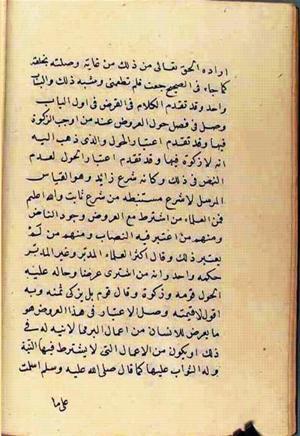 اراده الحق تعالى من ذلك من غاية وصلته بخلقه
كما جاء في الصحيح جعت فلم تطعمني وشبه ذلك والباب
واحد وقد تقدم الكلام في القرض في اول الباب
وصل في فصل حول العروض عند من اوجب الزكوة
فيها وقد تقدم اعتبار الحول والذي ذهب اليه
انه لا زكوة فيها وقد تقدم اعتبار الحول لعدم
النص في ذلك وكانه شرع زائد وهو القياس
المرسل لا شرع مستنبطه من شرع ثابت والله اعلم
فمن العلماء من اشترط مع العروض وجود الناض
ومنهم من اعتبر فيه النصاب ومنهم من لم
يعتبر ذلك وقال اكثر العلماء المدبر وغير المدبر
حكمه واحد وانه من اشترى عرضا وحال عليه
الحول قومه وزكوة وقال قوم بل يزكى ثمنه وبه
اقول لا قيمته وصل الاعتبار في هذا العروض هو
ما يعرض للانسان من اعمال البر مما لا نية له في
ذلك او يكون من الاعمال التي لا يشترط فيها النية
وله الثواب عليها كما قال صلى الله عليه وسلم اسلمت
على ما